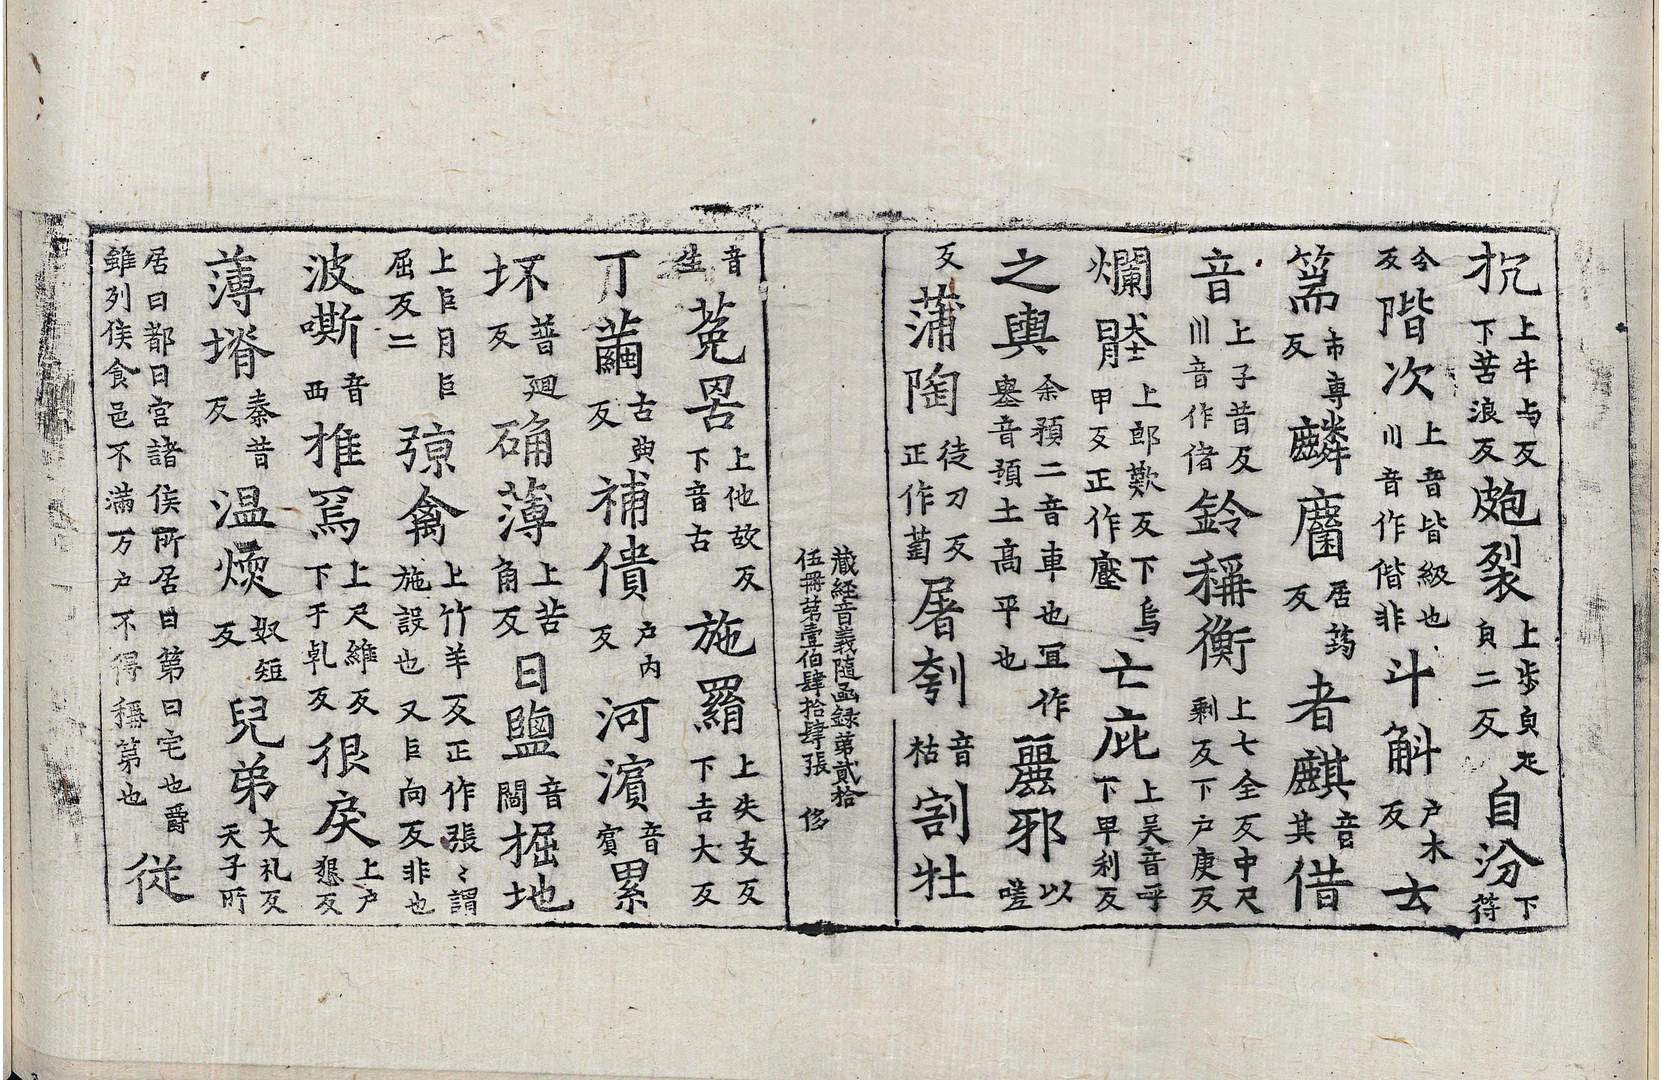 抭上牛与反下苦浪反皰裂上步皃疋皃二反自汾下苻
今反階次上音皆級也川音作偕非斗斛户木反去
篅市専反麟麕居筠反者麒音其借
音上子昔反川音作㣇鈴稱衡上七全反中尺剩反下户庚反
爛上郎歎反下烏甲反正作壓亡庇上吴音呼下甲利反
之輿余預二音車也冝作𡏖音預土高平也䴡邪以嗟
反蒲陶徒刀反正作萄屠刳音枯割牡
藏経音義随函録第貳拾
伍冊第壹伯肆拾肆張 侈
音生菟罟上他故反下音古施羂上失支反下吉大反
丁繭古典反補僓户内反河濵音賓累
坏普廻反确薄上苦角反日鹽音閻掘地
上巨月巨屈反二弶禽上竹羊反正作張〻謂施設也又巨向反非也
波嘶音西推焉上尺維反下于乹反佷戾上户懇反
薄塉秦昔反温煗奴短反兒弟大礼反天子所
居曰都曰宫諸侯所居曰第曰宅也爵雖列侯食邑不滿万户不得稱第也従